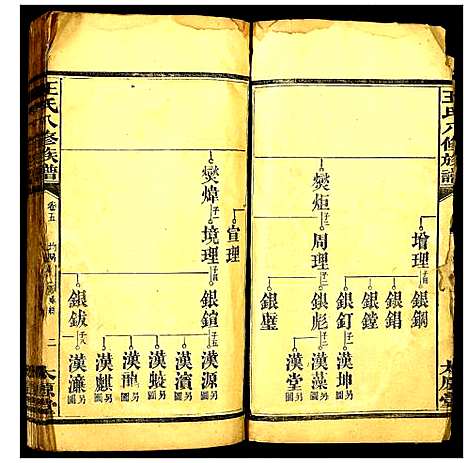 王氏八修族譜
太原堂
增理 子四
銀鋼
銀錩
銀鏜
銀釘 子一
漢坤 另圖
燮炬 子一
周理 子二
銀彪 子二
漢藻 另圖
漢堂 另圖
銀璧
宣理
燮煒 子二
境理 子二
銀鍹 子五
漢源 另圖
漢濱 另圖
漢璇 另圖
漢龍 另圖
漢麒 另圖
銀鈸 子六
漢濂 另圖
王氏八修族譜
卷五
二
太原堂